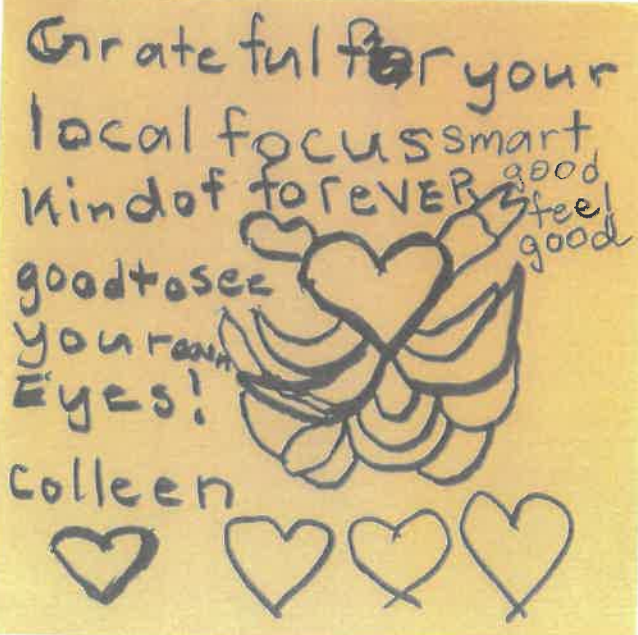 Grateful for your
local focus smart
kind of forevER good
feel
good
good to see
your own
Eyes!
Colleen